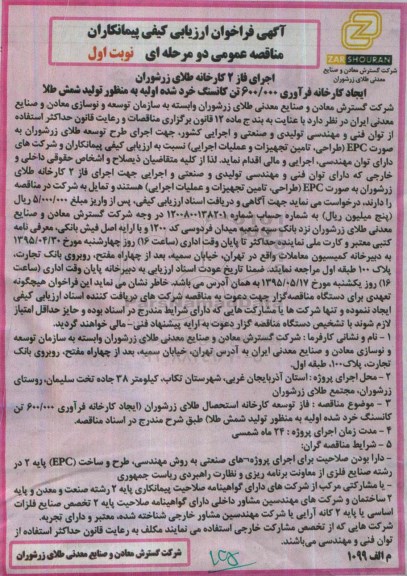 آگهی فراخوان ارزیابی کیفی پیمانکاران
مناقصه عمومی دو مرحله ای نوبت اول
ZARSHOURAN
شرکت گسترش معادن و صنایع
معدنی طلای زرشوران
اجرای فاز ۲ کارخانه طلای زرشوران
ایجاد کارخانه فرآوری ۶۰۰/۰۰۰ تن کانسنگ خرد شده اولیه به منظور تولید شمش طلا
شرکت گسترش معادن و صنایع معدنی طلای زرشوران وابسته به سازمان توسعه و نوسازی معادن و صنایع
معدنی ایران در نظر دارد با عنایت به بند ج ماده ۱۲ قانون برگزاری مناقصات و رعایت قانون حداکثر استفاده
از توان فنی و مهندسی تولیدی و صنعتی و اجرایی کشور، جهت اجرای طرح توسعه طلای زرشوران به
صورت EPC (طراحی، تامین تجهیزات و عملیات اجرایی) نسبت به ارزیابی کیفی پیمانکاران و شرکت های
دارای توان مهندسی، اجرایی و مالی اقدام نماید. لذا از کلیه متقاضیان ذیصلاح و اشخاص حقوقی داخلی و
خارجی که دارای توان فنی و مهندسی تولیدی و صنعتی و اجرایی جهت اجرای فاز ۲ کارخانه طلای
زرشوران به صورت EPC (طراحی، تامین تجهیزات و عملیات اجرایی) هستند و تمایل به شرکت در مناقصه
را دارند، درخواست می نماید جهت آگاهی و دریافت اسناد ارزیابی کیفی، پس از واریز مبلغ ۵/۰۰۰/۰۰۰ ریال
(پنج میلیون ریال) به شماره حساب شماره ۱۲۰۰۸۰۰۱۳۸۲۰۱ در وجه شرکت گسترش معادن و صنایع
معدنی طلای زرشوران نزد بانک سپه شعبه میدان فردوسی کد ۱۲۰۰ و با ارایه اصل فیش بانکی، معرفی نامه
کتبی معتبر و کارت ملی نماینده، حداکثر تا پایان وقت اداری (ساعت ۱۶) روز چهارشنبه مورخ ۱۳۹۵/۰۴/۳۰
به دبیرخانه کمیسیون معاملات واقع در تهران، خیابان سمیه، بعد از چهاراه مفتح، روبروی بانک تجارت،
پلاک ۱۰۰ طبقه اول مراجعه نمایند. ضمنا تاریخ عودت اسناد ارزیابی به دبیرخانه پایان وقت اداری (ساعت
۱۶) روز یکشنبه مورخ ۱۳۹۵/۰۵/۱۷ به همان آدرس می باشد. خاطر نشان می نماید این فراخوان هیچگونه
تعهدی برای دستگاه مناقصه گزار جهت دعوت به مناقصه شرکت های دریافت کننده اسناد ارزیابی کیفی
ایجاد ننموده و تنها شرکت ها یا مشارکت هایی که دارای شرایط مندرج در اسناد بوده و حایز حداقل امتیاز
لازم شوند با تشخیص دستگاه مناقصه گزار دعوت به ارایه پیشنهاد فنی- مالی خواهند گردید.
۱ - نام و نشانی کارفرما : شرکت گسترش معادن و صنایع معدنی طلای زرشوران وابسته به سازمان توسعه
و نوسازی معادن و صنایع معدنی ایران به آدرس تهران، خیابان سمیه، بعد از چهاراه مفتح، روبروی بانک
تجارت، پلاک۱۰۰، طبقه اول.
۲ - محل اجرای پروژه : استان آذربایجان غربی، شهرستان تکاب، کیلومتر ۳۸ جاده تخت سلیمان، روستای
زرشوران، مجتمع طلای زرشوران
۳ - موضوع مناقصه : فاز توسعه کارخانه استحصال طلای زرشوران (ایجاد کارخانه فرآوری ۶۰۰/۰۰۰ تن
کانسنگ خرد شده اولیه به منظور تولید شمش طلا) طبق شرح مندرج در اسناد مناقصه.
۴ - مدت زمان اجرای پروژه : ۲۴ ماه شمسی
۵ - شرایط مناقصه گران:
- دارا بودن صلاحیت برای اجرای پروژه¬های صنعتی به روش مهندسی، طرح و ساخت (EPC) پایه ۲ در
رشته صنایع فلزی از معاونت برنامه ریزی و نظارت راهبردی ریاست جمهوری
- یا مشارکتی مرکب از شرکت های دارای گواهینامه صلاحیت پیمانکاری پایه ۲ رشته صنعت و معدن و پایه
۲ ساختمان و شرکت های مهندسین مشاور داخلی دارای گواهینامه صلاحیت پایه ۲ تخصص صنایع فلزات
اساسی یا پایه ۲ کانه آرایی یا شرکت مهندسین مشاور خارجی شناخته شده، معتبر و دارای تجربه.
شرکت هایی که از تخصص مشارکت خارجی استفاده می نمایند مکلف به رعایت قانون حداکثر استفاده از
توان فنی و مهندسی می‌باشند.
م الف ۱۰۹۹
شرکت گسترش معادن و صنایع معدنی طلای زرشوران